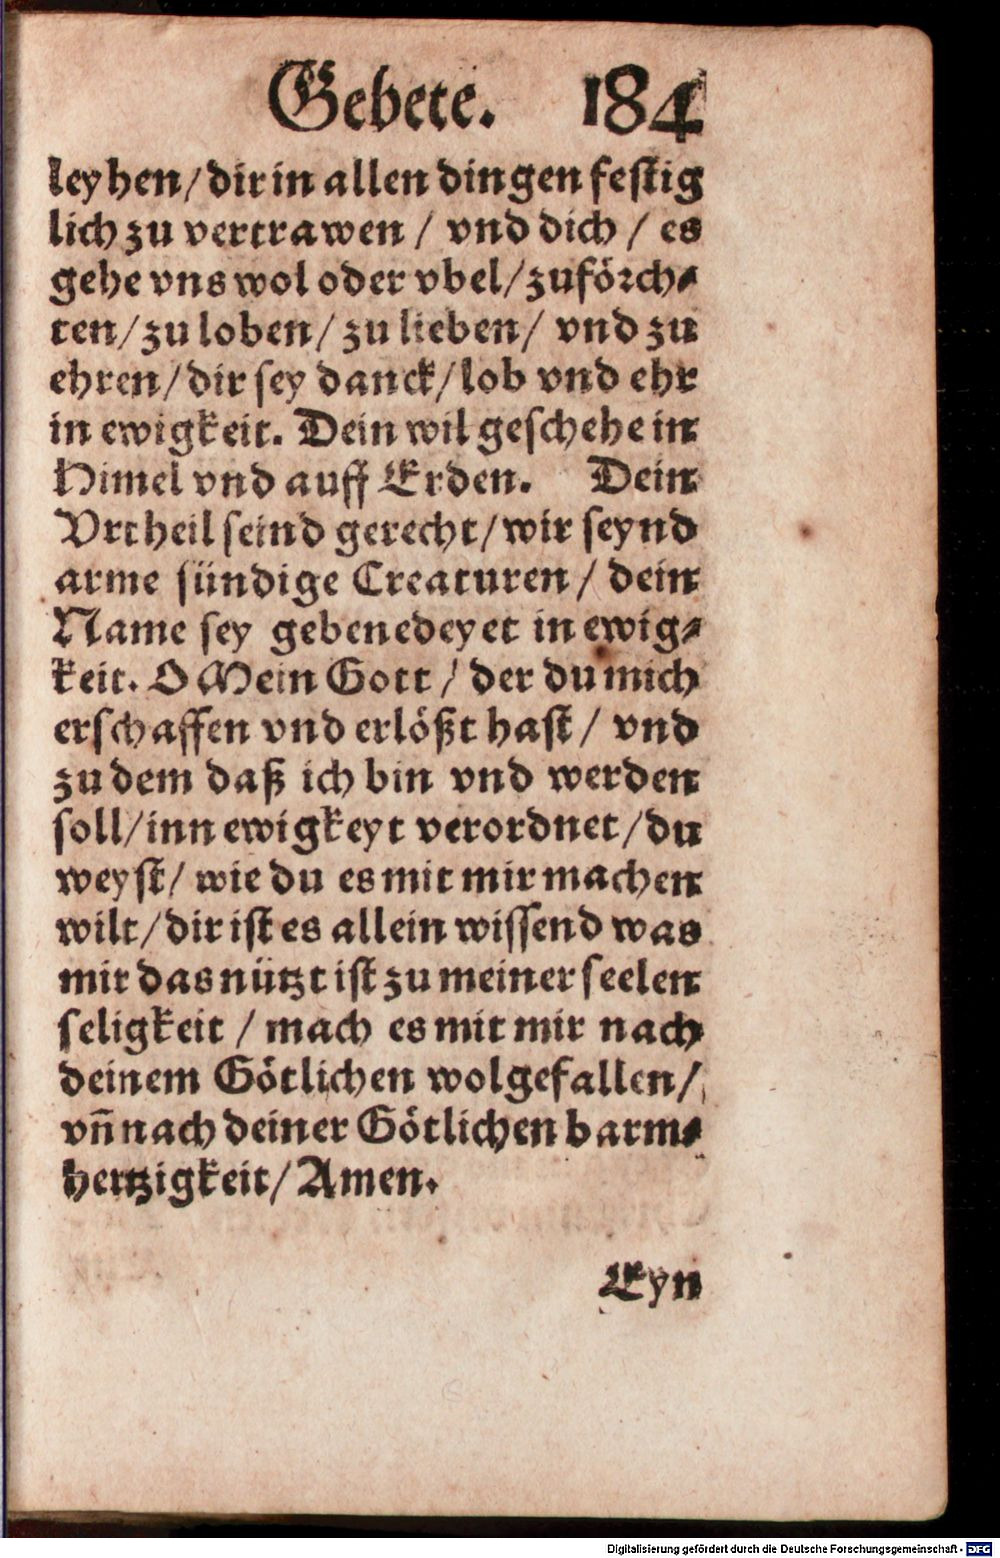 Gebete. 184
leyhen/dir in allen dingen festig
lich zu vertrawen / vnd dich / es
gehe vns wol oder vbel/zuförch⸗
ten/zu loben/zu lieben/ vnd zu
ehren/dir sey danck/lob vnd ehr
in ewigkeit. Dein wil geschehe in
Himel vnd auff Erden. Dein
Vrtheil seind gerecht/wir seynd
arme sündige Creaturen / dein
Name sey gebenedeyet in ewig⸗
keit. O Mein Gott / der du mich
erschaffen vnd erlößt hast / vnd
zu dem daß ich bin vnd werden
soll/inn ewigkeyt verordnet/du
weyst/ wie du es mit mir machen
wilt/dir ist es allein wissend was
mir das nützt ist zu meiner seelen
seligkeit / mach es mit mir nach
deinem Götlichen wolgefallen/
vn̄ nach deiner Götlichen barm⸗
hertzigkeit/Amen.
Eyn
Digitalisierung gefördert durch die Deutsche Forschungsgemeinschaft - DFG